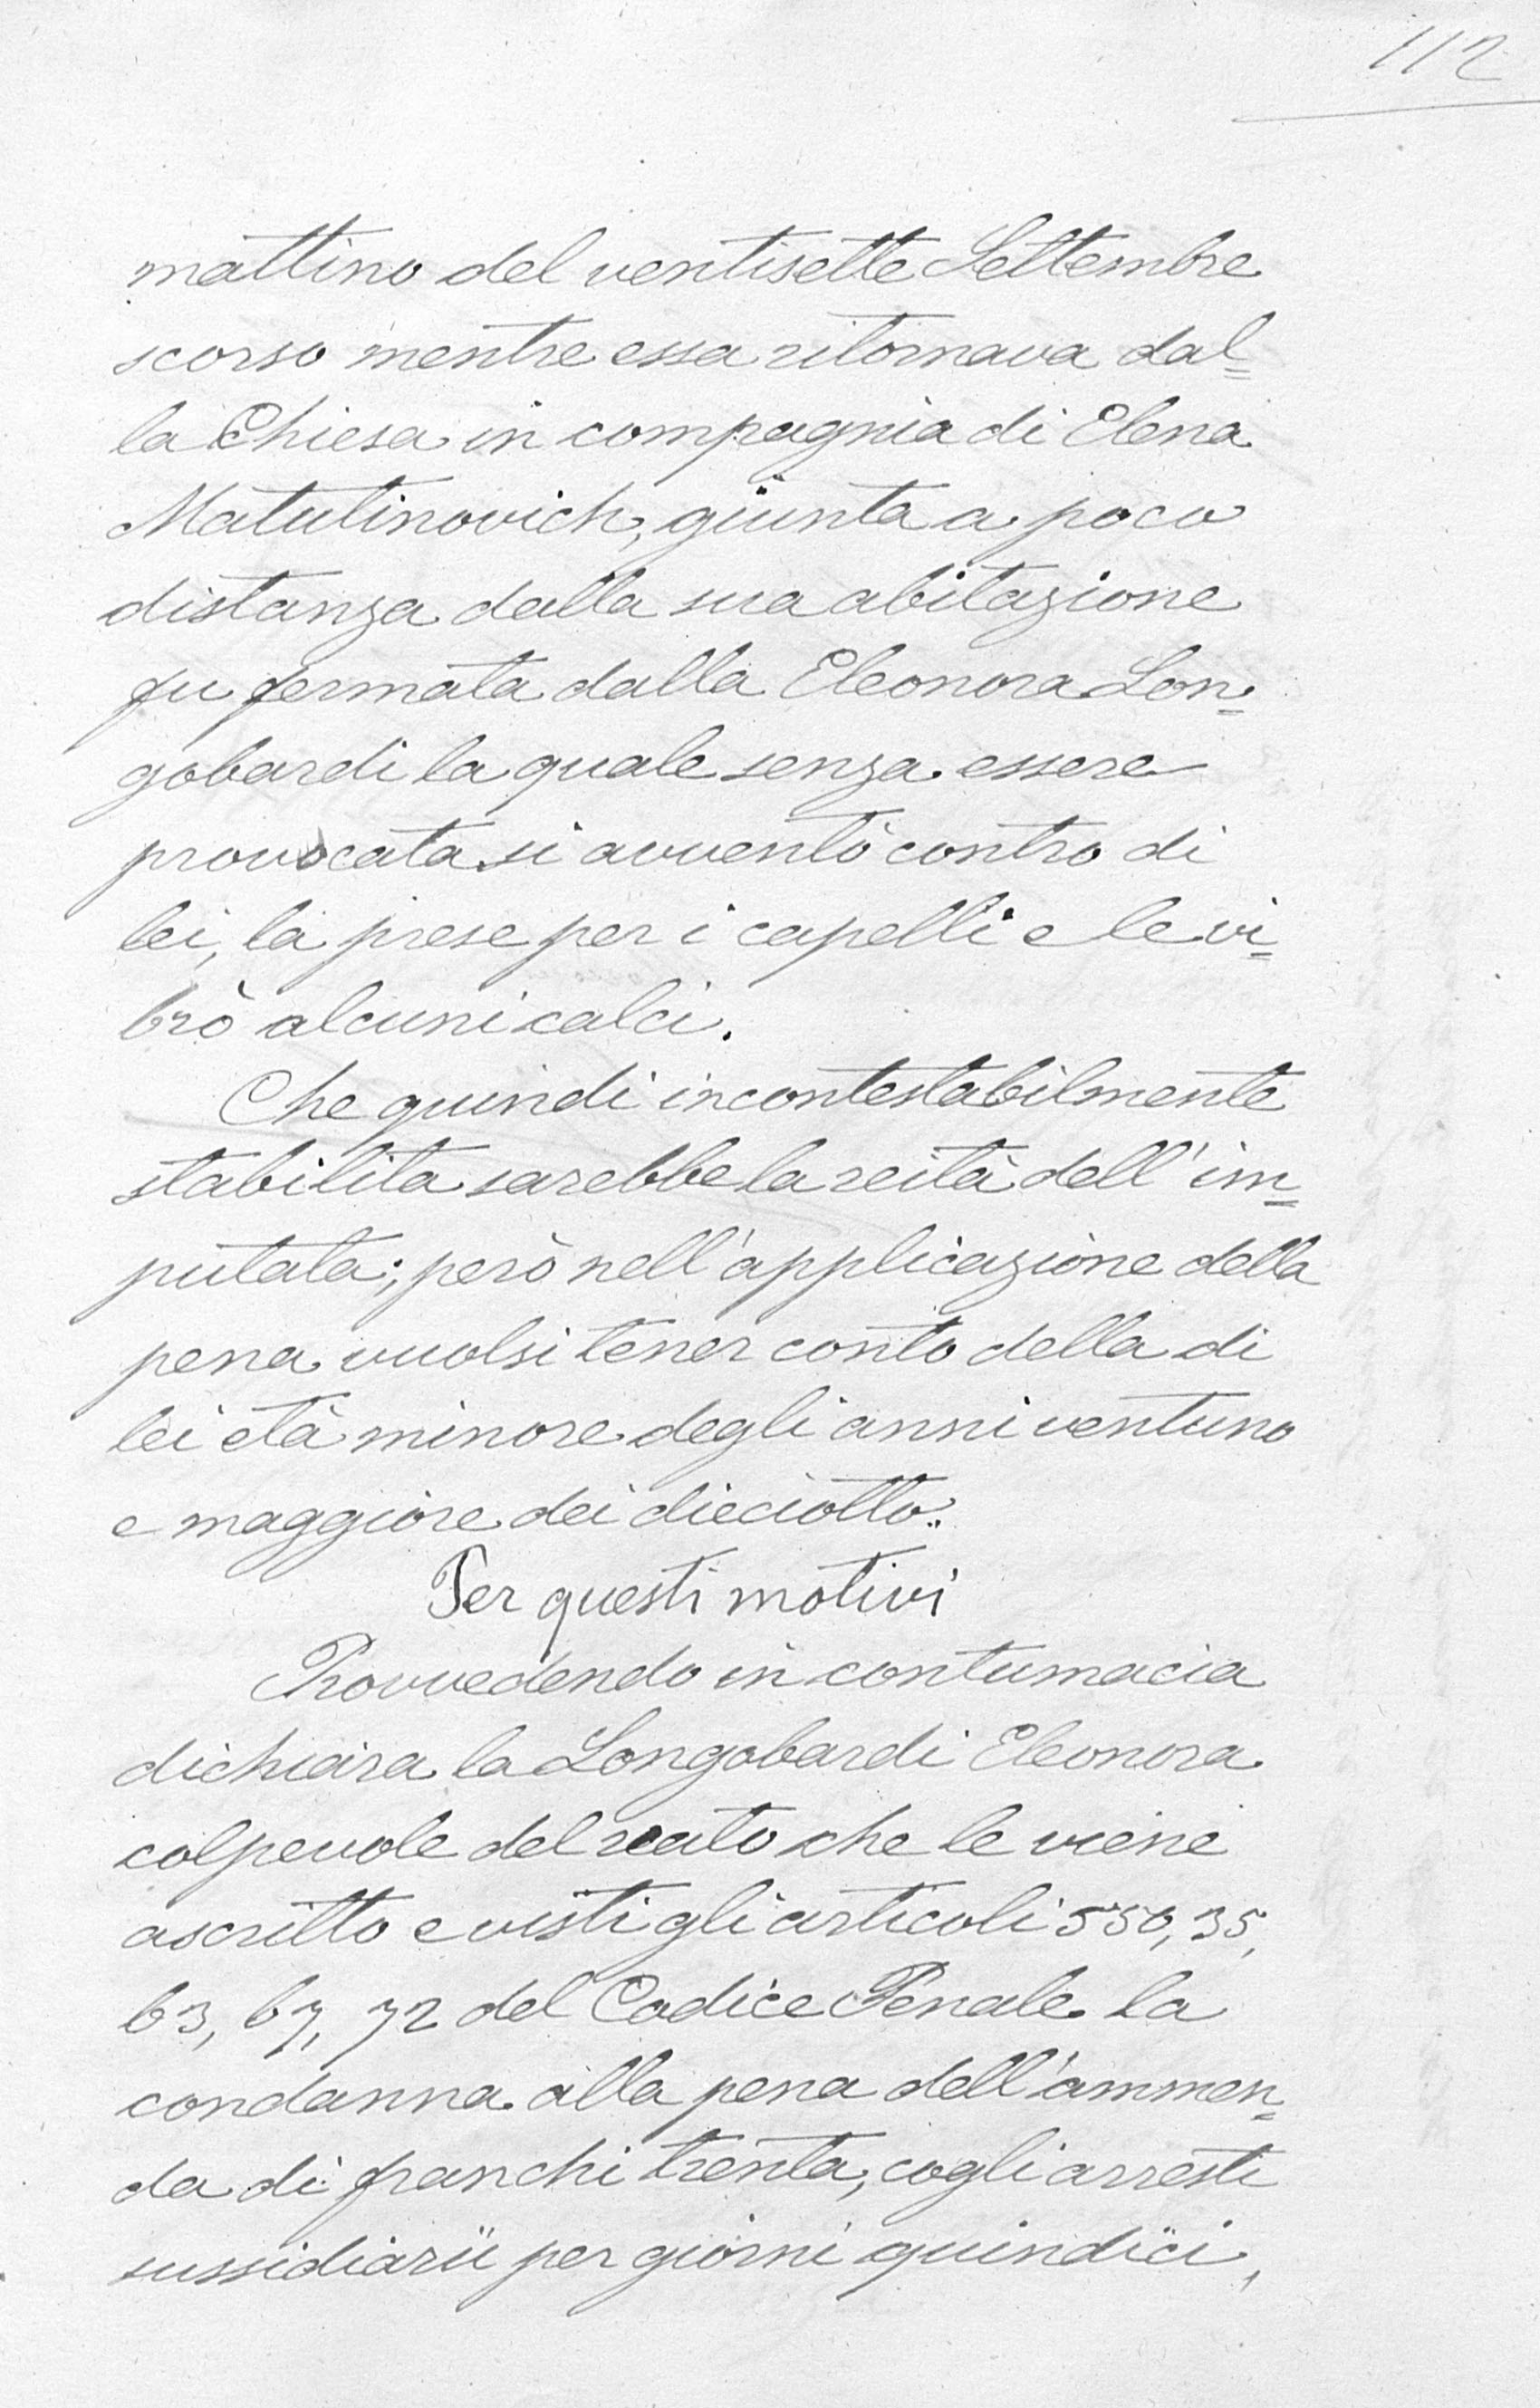 112
mattino del ventisette Settembre
scorso mentre essa ritornava dal=
la Chiesa in compagnia di Elena
Matutinovich, giunta a poca
distanza dalla sua abitazione
fu fermata dalla Eleonora Lon=
gobardi la quale senza essere
provocata si avventò contro di
lei, la prese per i capelli e le vi=
brò alcuni calci.
Che quindi incontestabilmente
stabilita sarebbe la reità dell'im=
putata; però nell'applicazione della
pena vuolsi tener conto della di
lei età minore degli anni ventuno
e maggiore dei dieciotto.
Per questi motivi
Provvedendo in contumacia
dichiara la Longobardi Eleonora
colpevole del reato che le viene
ascritto e visti gli articoli 550, 35,
63, 67, 72 del Codice Penale la
condanna alla pena dell'ammen=
da di franchi trenta, cogli arresti
sussidiarii per giorni quindici,